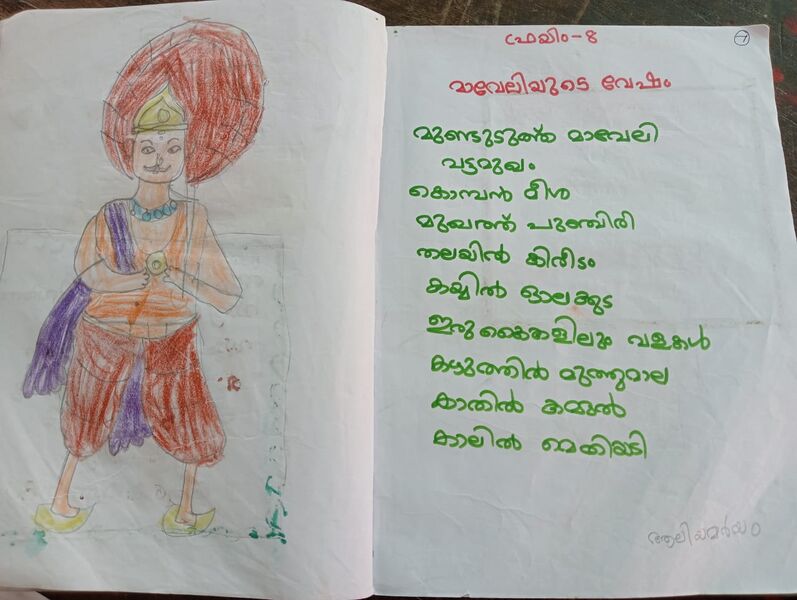 ഫ്രെയിം-8
7
മാവേലിയുടെ വേഷം
മുണ്ടുടുത്ത മാവേലി
വട്ടമുഖം
കൊമ്പൻ മീശ
മുഖത്ത് പുഞ്ചിരി
തലയിൽ കിരീടം
കയ്യിൽ ഓലക്കുട
ഇരു കൈകളിലും വളകൾ
കഴുത്തിൽ മുത്തുമാല
കാതിൽ കമ്മൽ
കാലിൽ മെതിയടി